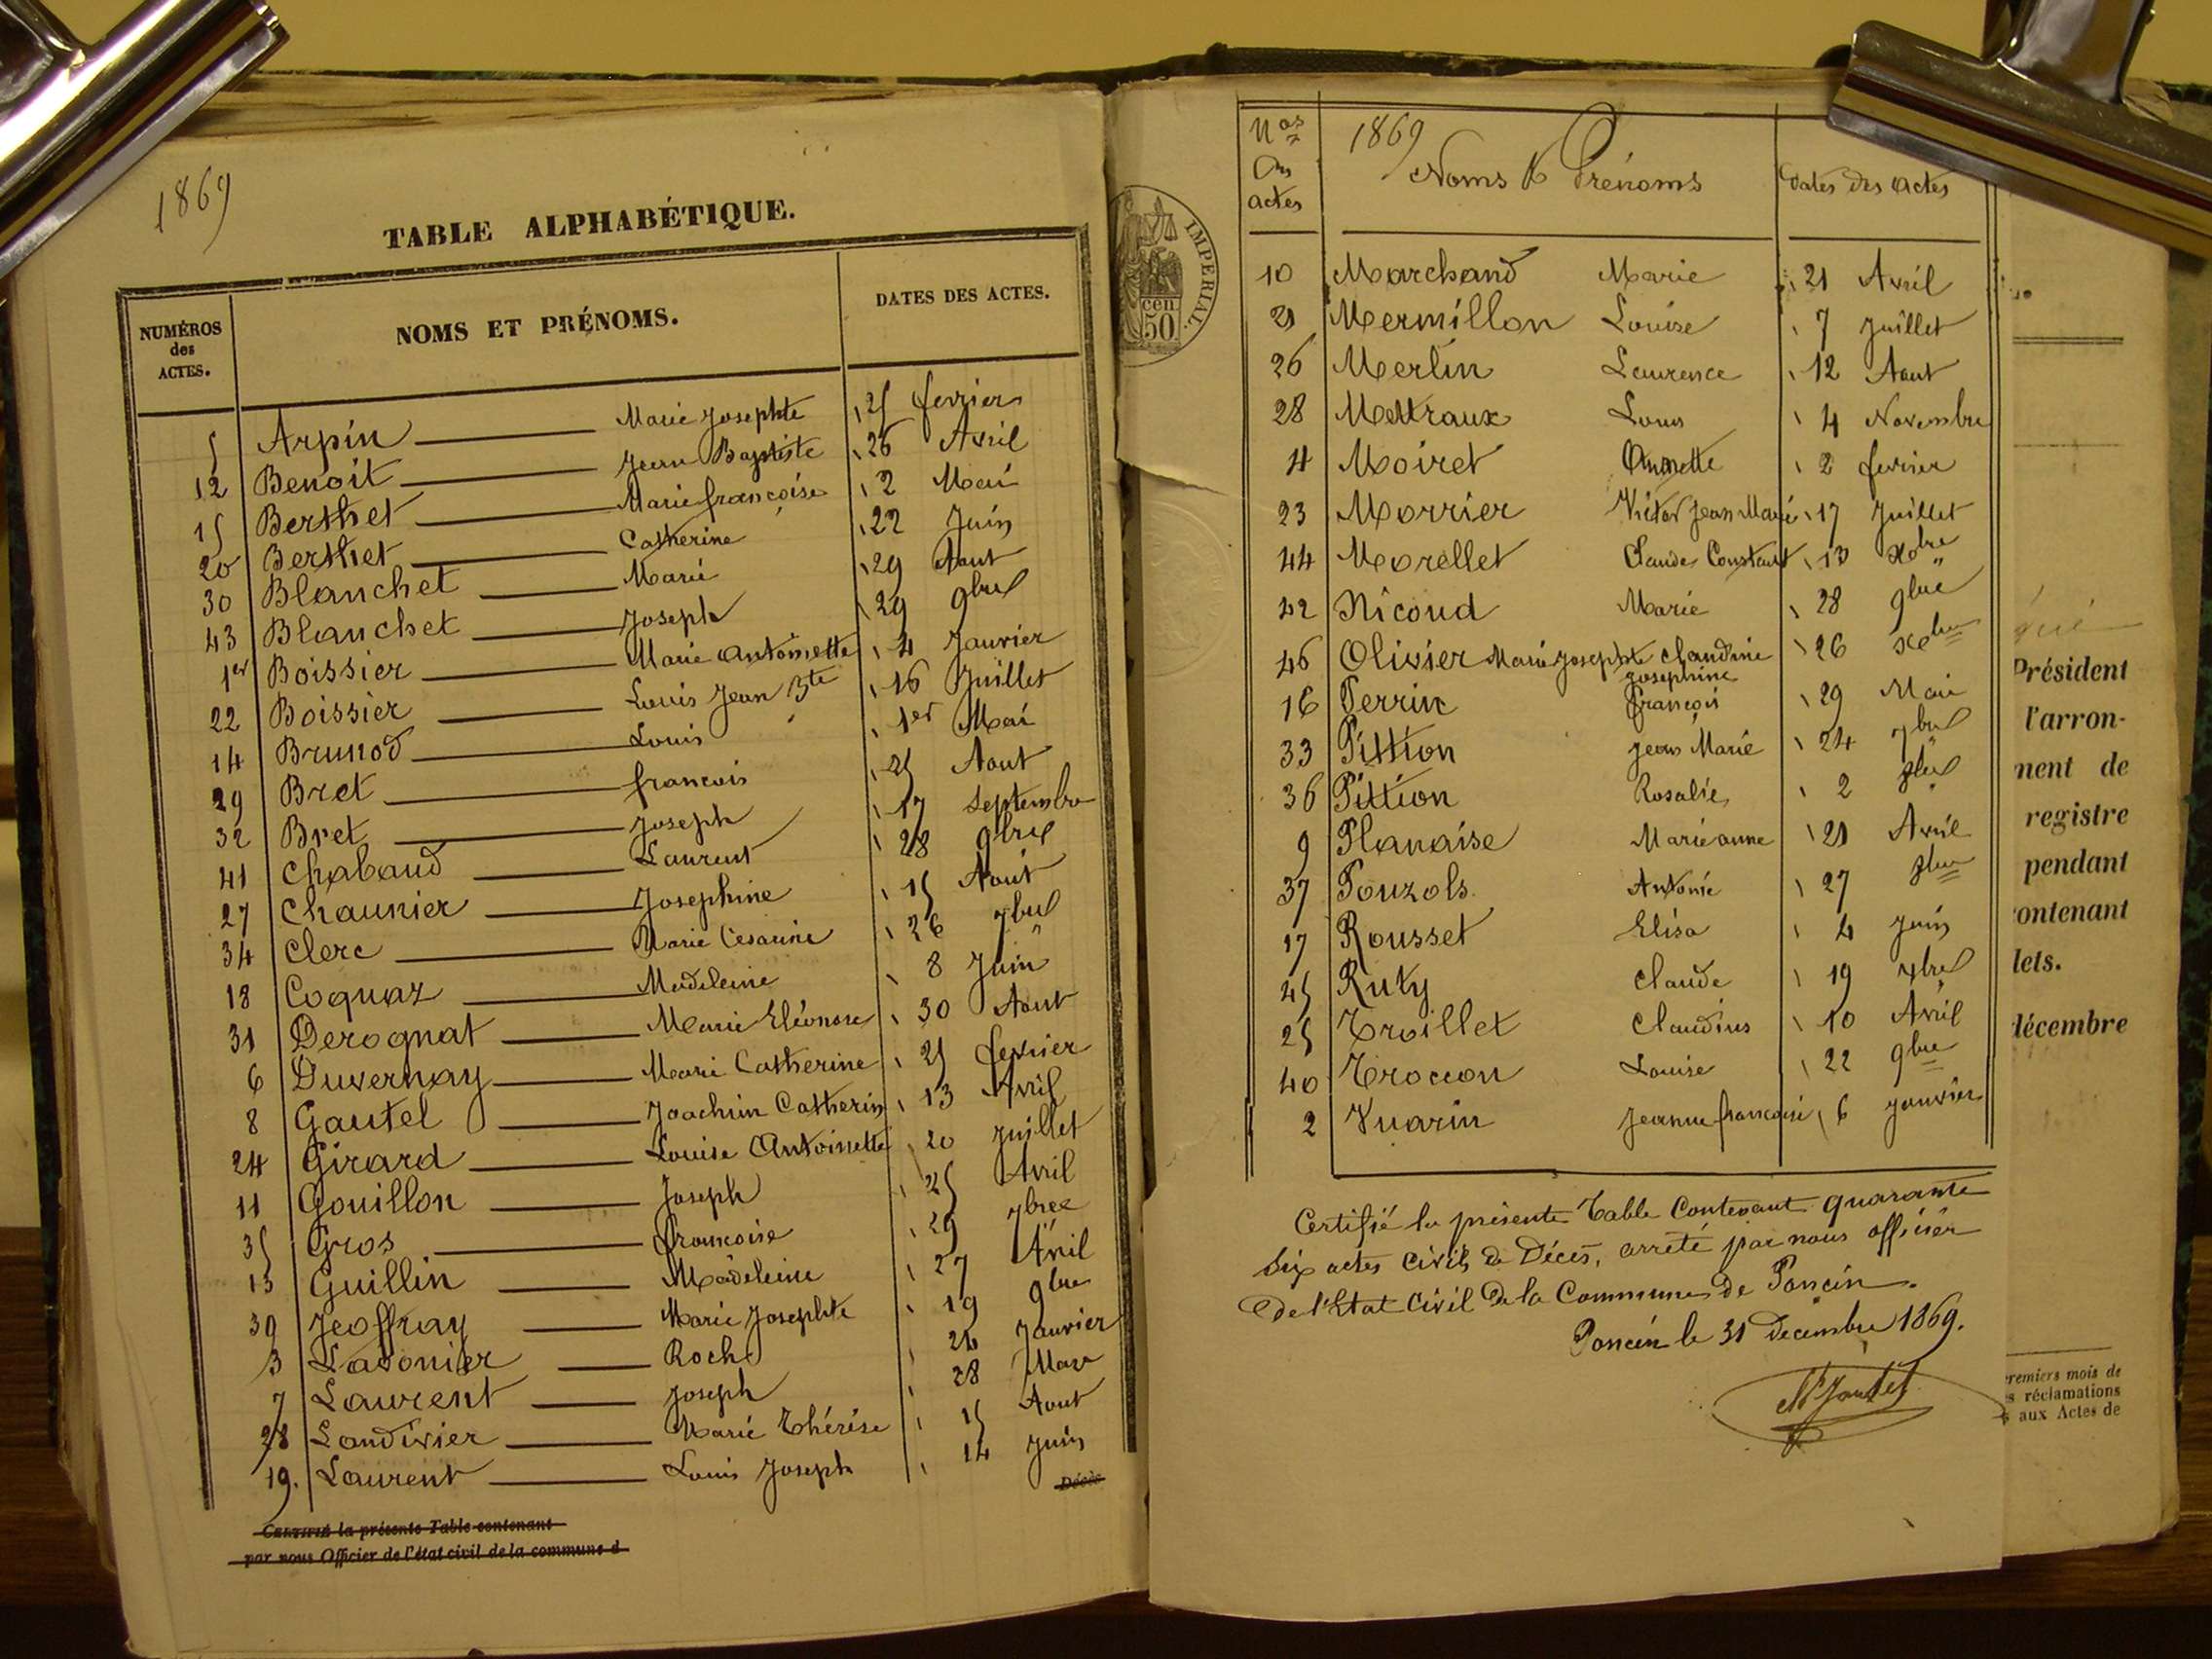 1869
TABLE ALPHABÉTIQUE.
NUMÉROS des ACTES. NOMS ET PRÉNOMS. DATES DES ACTES.
5 Arpin Marie Josephte 25 fevrier
12 Benoit Jean Baptiste 26 Avril
15 Berthet Marie françoise 2 Mai
20 Berthet Catherine 22 Juin
30 Blanchet Marie 29 Aout
43 Blanchet Joseph 29 9bre
1er Boissier Marie Antoinette 4 Janvier
22 Boissier Louis Jean Bte 16 Juillet
14 Brunod Louis 1er Mai
29 Bret francois 25 Aout
32 Bret Joseph 17 Septembre
41 Chaband Laurent 28 9bre
27 Chaunier Josephine 15 Août
34 Clerc Marie Césarine 26 7bre
18 Coquaz Madeleine 8 Juin
31 Derognat Marie Eléonore 30 Aout
6 Duvernay Marie Catherine 25 fevrier
8 Gautel Joachim Catherin 13 Avril
24 Girard Louise Antoinette 20 Juillet
11 Gouillon Joseph 25 Avril
35 Gros francoise 29 7bre
13 Guillin Madeleine 27 Avril
39 Jeoffray Marie Josephte 19 9bre
3 Lavonier Roch 26 Janvier
7 Laurent Joseph 28 Mars
28 Landivier Marie Thérèse 15 Aout
19. Laurent Louis Joseph 14 Juin
Décès
CERTIFIÉ la présente Table contenant
par nous Officier de l'état civil de la commune d
IMPERIAL.
50 cen
Nos des actes 1869 Noms & Prénoms Dates des actes
10 Marchand Marie 21 Avril
21 Mermillon Louise 7 Juillet
26 Merlin Laurence 12 Aout
28 Mettraux Louis 4 Novembre
4 Moiret Annette 2 fevrier
23 Morrier Victor Jean Marie 17 Juillet
44 Morellet Claude Constant 13 Xbre
42 Nicoud Marie 28 9bre
46 Olivier Marie Josephte Claudine Josephine 26 Xbre
16 Perrin françois 29 Mai
33 Pittion Jean Marie 24 7bre
36 Pittion Rosalie 2 8bre
9 Planaise Marie anne 21 Avril
37 Pouzols Antonie 27 8bre
17 Rousset Elisa 4 Juin
45 Ruty Claude 19 Xbre
25 Troillet Claudius 10 Avril
40 Troccon Louise 22 9bre
2 Vuarin Jeanne francoise 6 Janvier
Certifié la présente Table Contenant quarante
six actes civils de Décès, arrêté par nous officier
de l'Etat Civil de la Commune de Poncin.
Poncin le 31 Decembre 1869.
Président
l'arron-
nent de
registre
pendant
contenant
lets.
décembre
premiers mois de
s réclamations
s aux Actes de